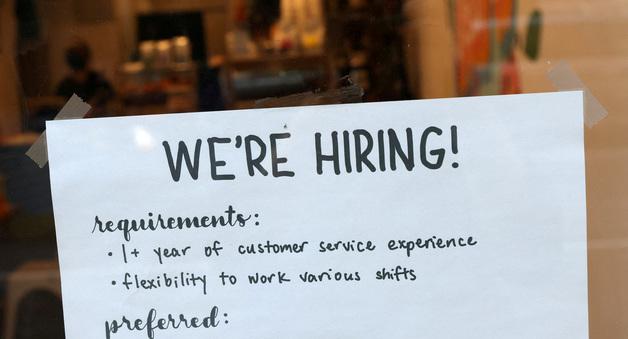 WE'RE HIRING!
requirements:
• 1+ year of customer service experience
• flexibility to work various shifts
preferred: